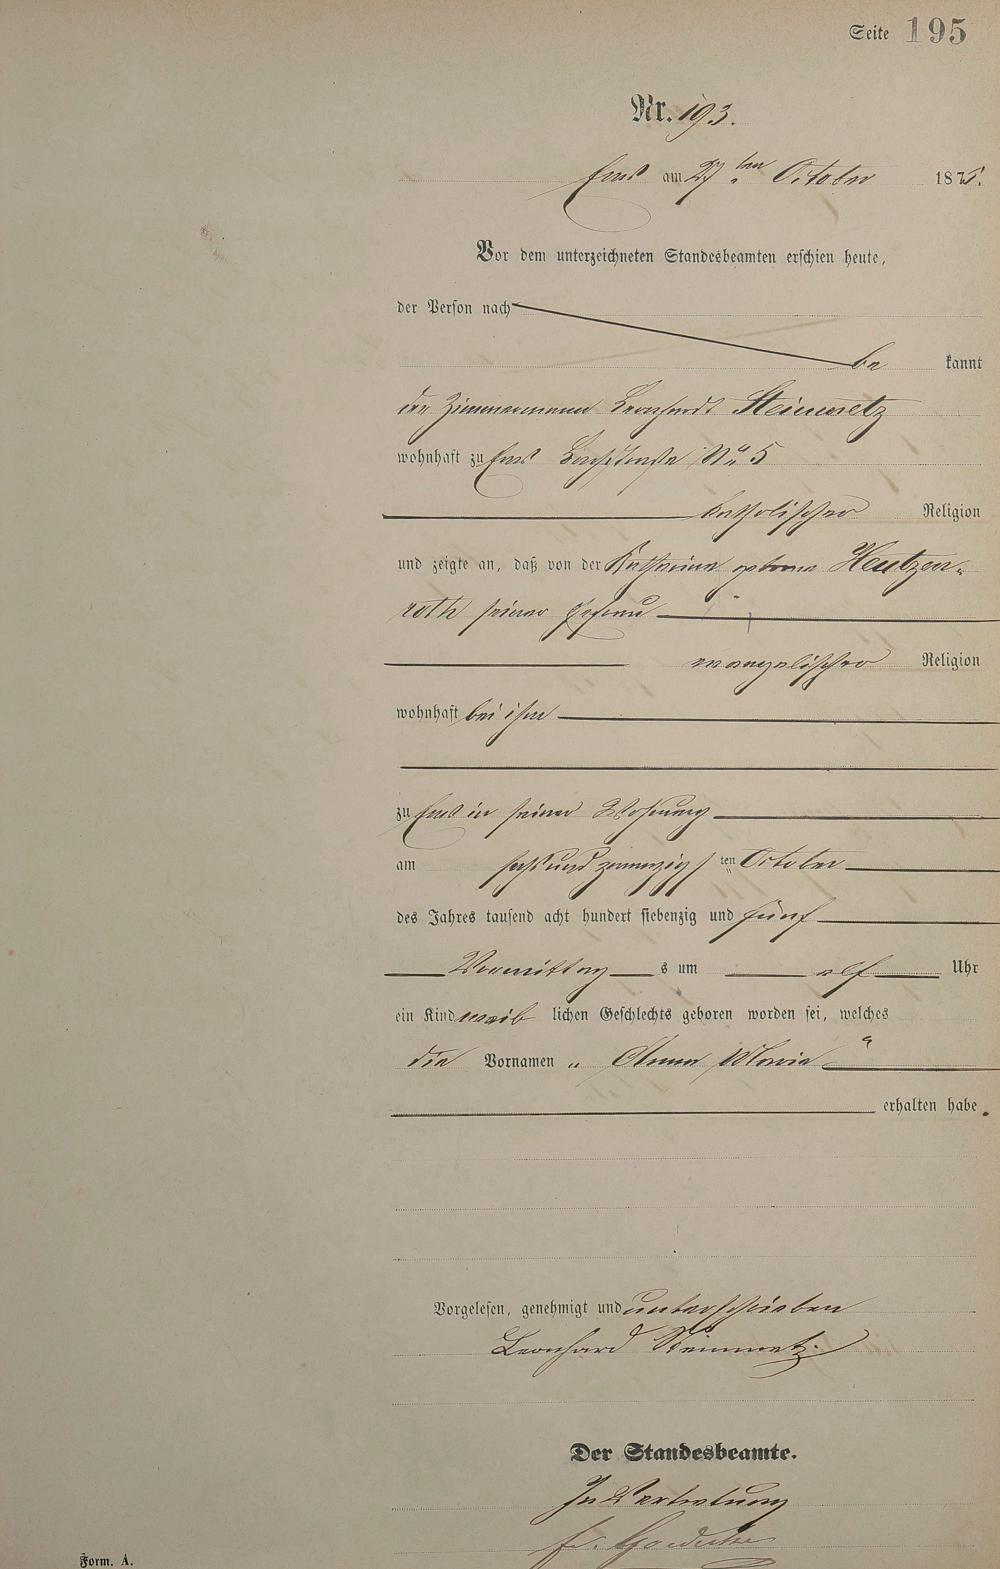 Seite 195
Nr. 193.
Ems am 27 ten October 1875.
Vor dem unterzeichneten Standesbeamten erschien heute,
der Person nach
be kannt
der Zimmermann Leonhardt Steinmetz
wohnhaft zu Ems No 5
katholischer Religion
und zeigte an, daß von der Katharina geborne Heutzen-
roth seiner Ehefrau
evangelischer Religion
wohnhaft bei ihm
zu Ems in seiner Wohnung
am sechsundzwanzig ten October
des Jahres tausend acht hundert siebenzig und fünf
Vormittag s um elf Uhr
ein Kind weib lichen Geschlechts geboren worden sei, welches
die Vornamen „ Anna Maria “
erhalten habe.
Vorgelesen, genehmigt und unterschrieben
Leonhard Steinmetz
Der Standesbeamte.
In Vertretung
Form. A.